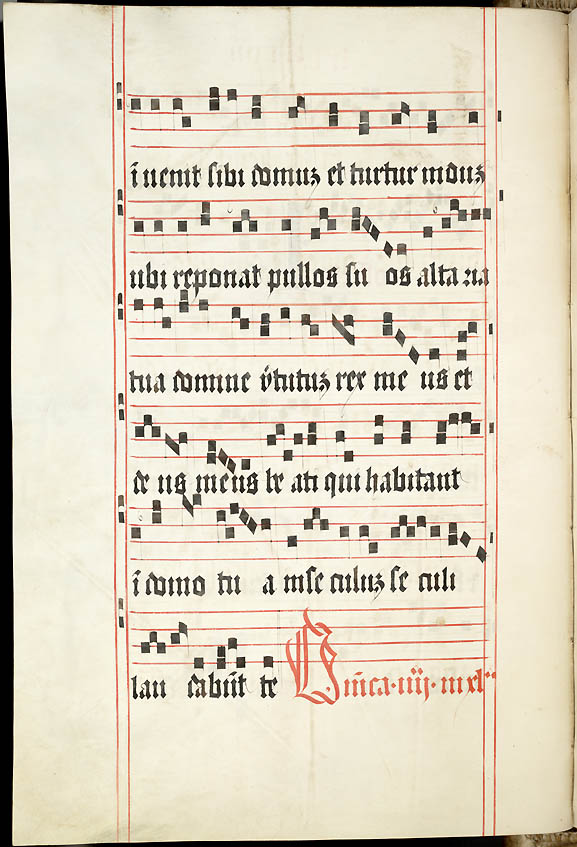 īuenit sibi domuʒ et turtur niduʒ
ubi reponat pullos su os alta ria
tua domine v̄tutuʒ rex me us et
de us meus be ati qui habitant
ī domo tu a in se culuʒ se culi
lau dabūt te Dn̄ica · iiij · in xl